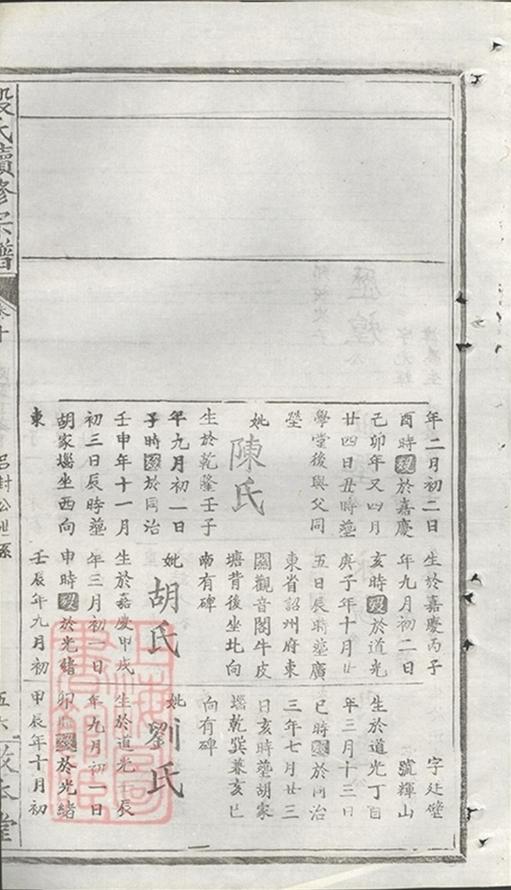 年二月初二日
酉時歿於嘉慶
己卯年又四月
廿四日丑時塟
學堂後與父同
塋
妣陳氏
生於乾隆壬子
年九月初一日
子時歿於同治
壬申年十一月
初三日辰時塟
胡家堖坐西向
東
生於嘉慶丙子
年九月初二日
亥時歿於道光
庚子年十月廿
五日辰時塟廣
東省詔州府東
關觀音閣牛皮
塘背後坐北向
南有碑
妣胡氏
生於嘉慶甲戌
年三月初一日
申時歿於光緒
壬辰年九月初
字廷壁
號輝山
生於道光丁酉
年三月十三日
巳時歿於同治
三年七月廿三
日亥時塟胡家
堖乾巽兼亥巳
向有碑
妣劉氏
生於道光壬辰
年九月初一日
卯時歿於光緒
甲辰年十月初
段氏續修宗譜
卷十
呂封公世系
五六
本堂